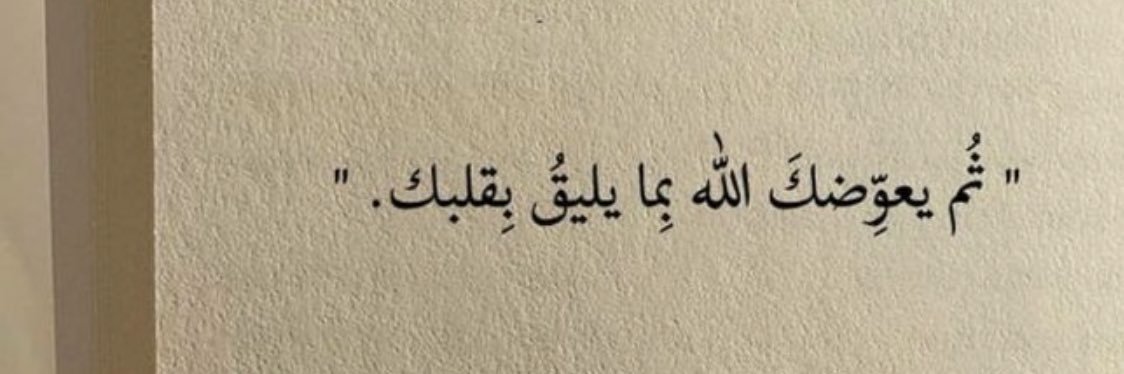 " ثُم يعوِّضكَ اللّٰه بِما يليقُ بِقلبك. "